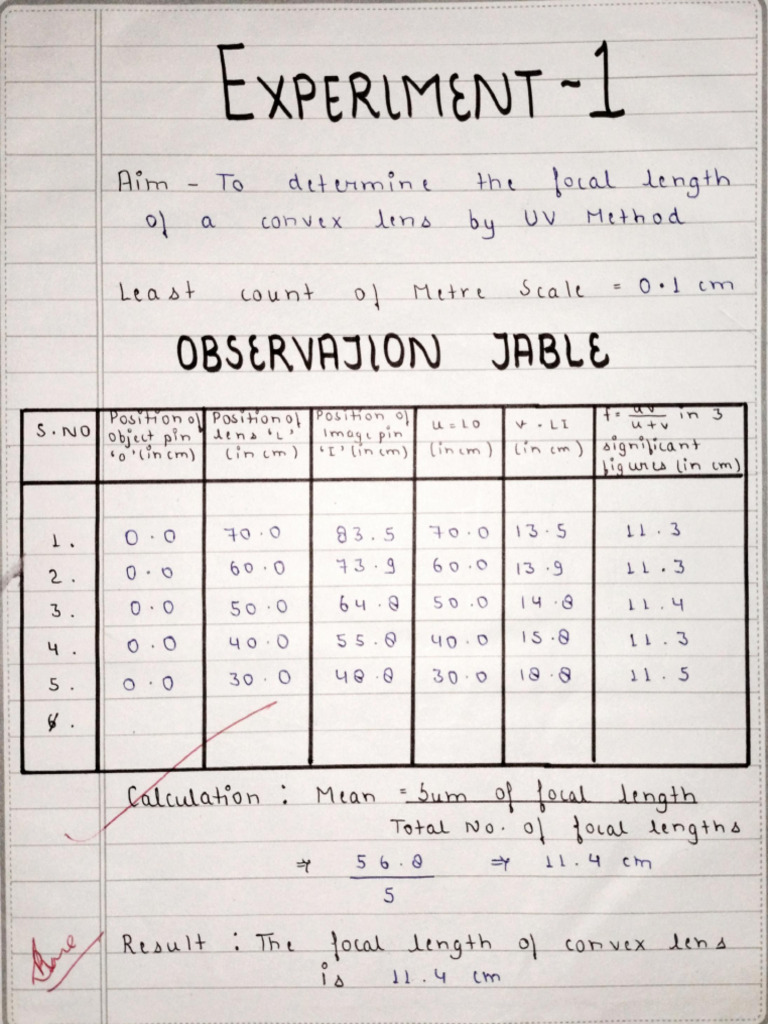 EXPERIMENT ~ 1
Aim - To determine the focal length
of a convex lens by UV Method
Least count of Metre Scale = 0.1 cm
OBSERVATION TABLE
S.NO
Position of
object pin
'O' (in cm)
Position of
lens 'L'
(in cm)
Position of
Image pin
'I' (in cm)
u = LO
(in cm)
v = LI
(in cm)
f = uv/u+v in 3
significant
figures (in cm)
1. 0.0 70.0 83.5 70.0 13.5 11.3
2. 0.0 60.0 73.9 60.0 13.9 11.3
3. 0.0 50.0 64.8 50.0 14.8 11.4
4. 0.0 40.0 55.8 40.0 15.8 11.3
5. 0.0 30.0 48.8 30.0 18.8 11.5
Calculation : Mean = Sum of focal length
Total No. of focal lengths
⇒ 56.8 ⇒ 11.4 cm
5
Result : The focal length of convex lens
is 11.4 cm